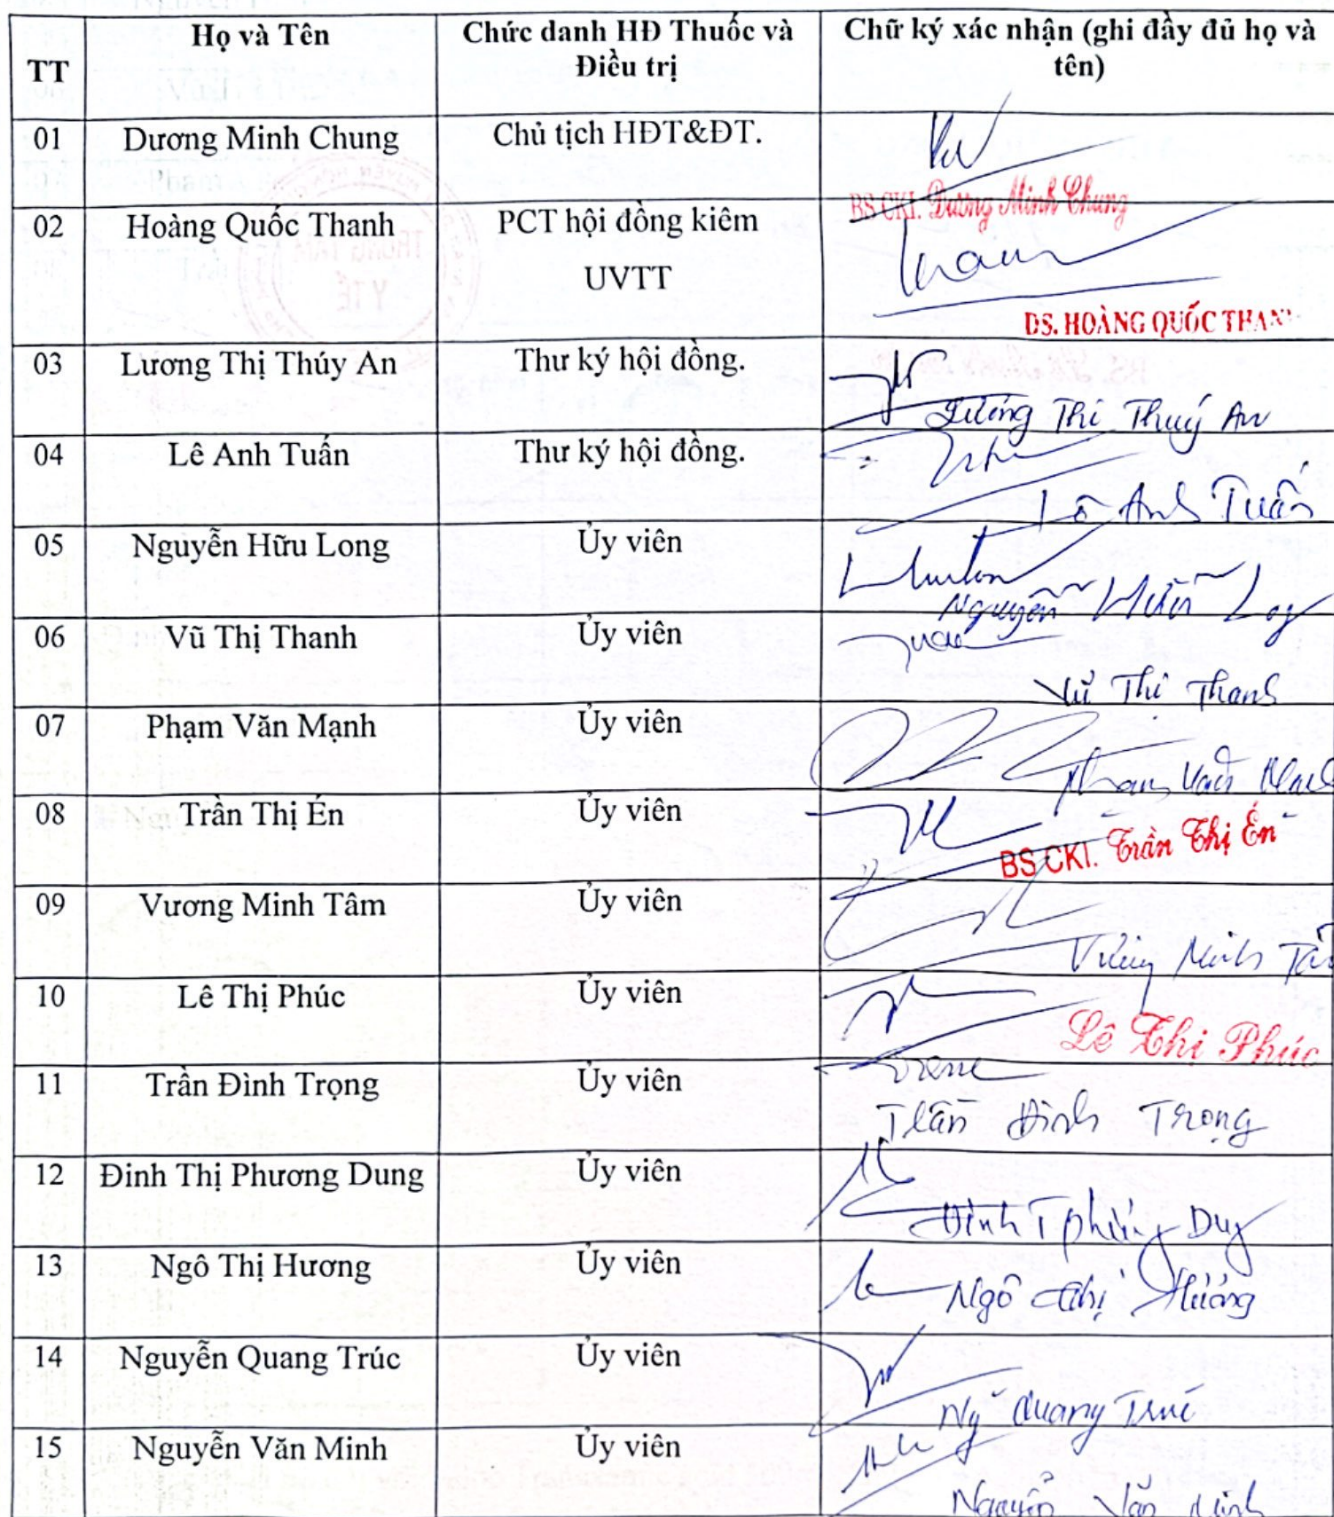 TT
Họ và Tên
Chức danh HĐ Thuốc và
Điều trị
Chữ ký xác nhận (ghi đầy đủ họ và
tên)
01 Dương Minh Chung Chủ tịch HĐT&ĐT.
BS CKI. Dương Minh Chung
02 Hoàng Quốc Thanh PCT hội đồng kiêm
UVTT
DS. HOÀNG QUỐC THANH
03 Lương Thị Thúy An Thư ký hội đồng.
Lương Thị Thuý An
04 Lê Anh Tuấn Thư ký hội đồng.
Lê Anh Tuấn
05 Nguyễn Hữu Long Ủy viên
Nguyễn Hữu Long
06 Vũ Thị Thanh Ủy viên
Vũ Thị Thanh
07 Phạm Văn Mạnh Ủy viên
Phạm Văn Mạnh
08 Trần Thị Én Ủy viên
BS CKI. Trần Thị Én
09 Vương Minh Tâm Ủy viên
Vương Minh Tâm
10 Lê Thị Phúc Ủy viên
Lê Thị Phúc
11 Trần Đình Trọng Ủy viên
Trần Đình Trọng
12 Đinh Thị Phương Dung Ủy viên
Đinh T Phương Dung
13 Ngô Thị Hương Ủy viên
Ngô Thị Hương
14 Nguyễn Quang Trúc Ủy viên
Ng Quang Trúc
15 Nguyễn Văn Minh Ủy viên
Nguyễn Văn Minh